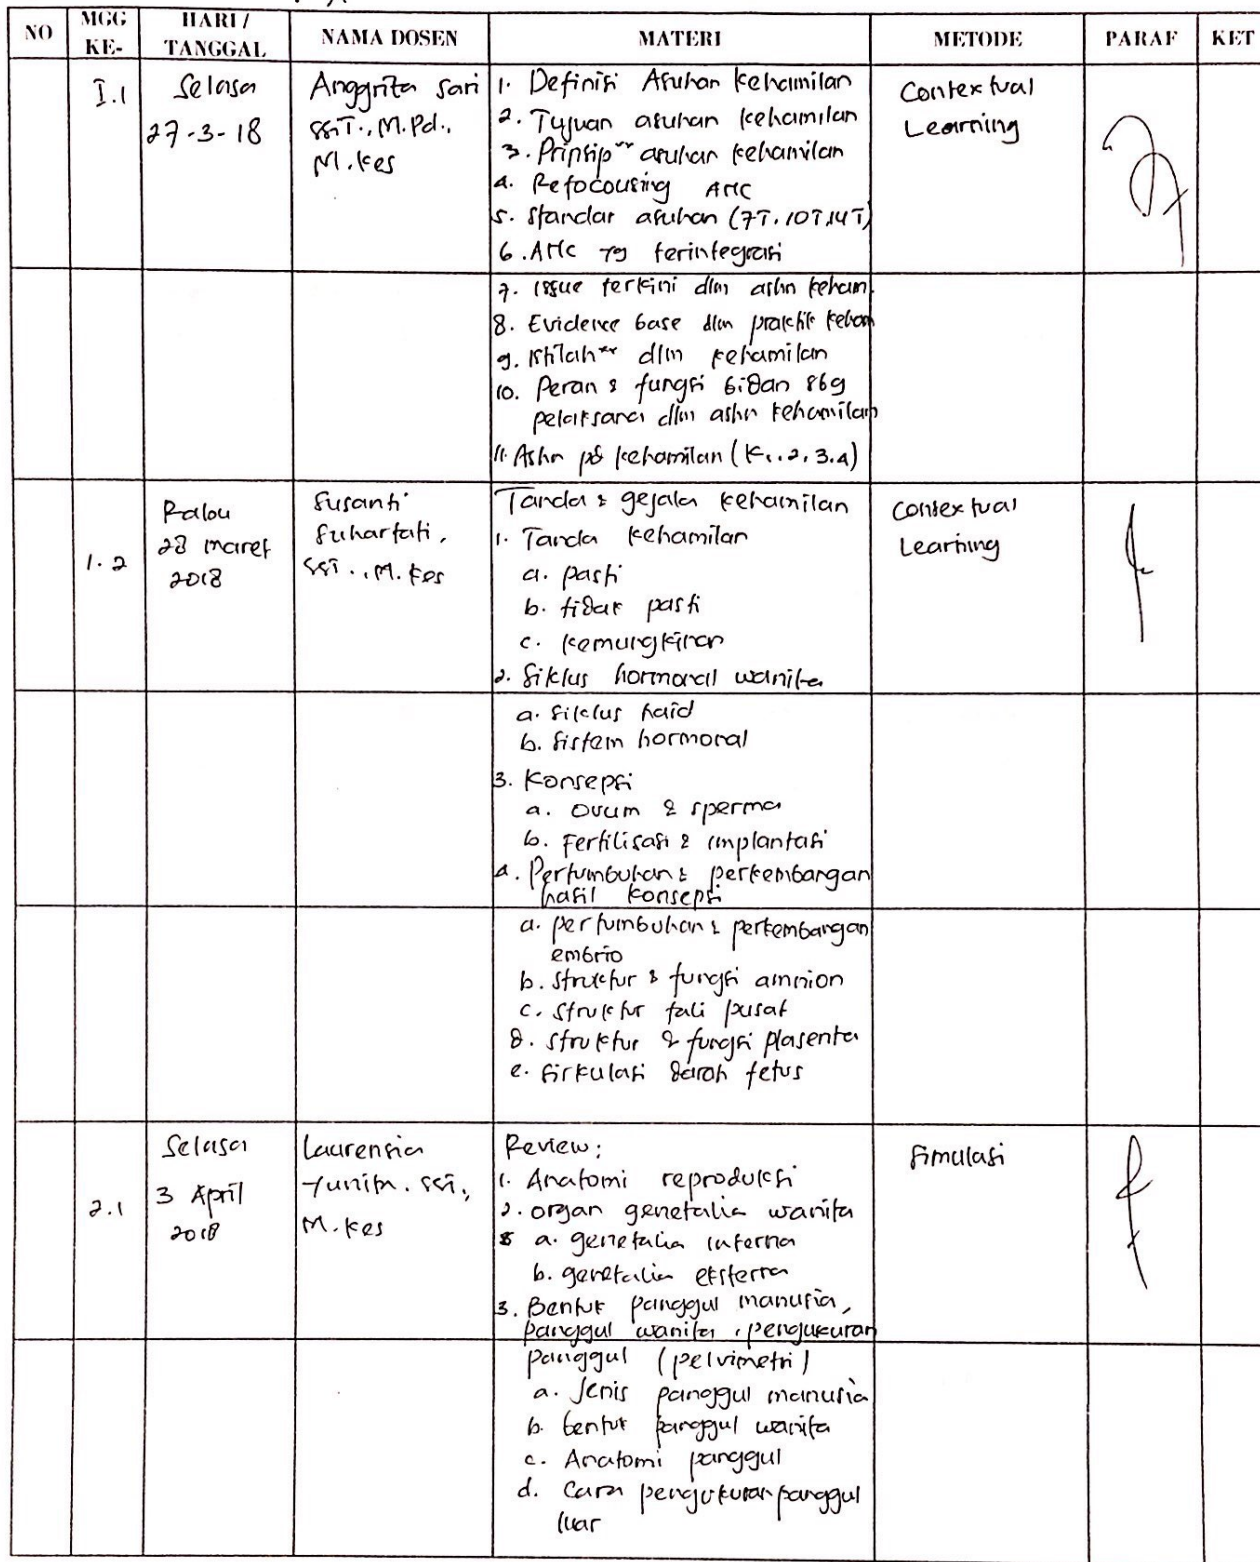 NO MGG KE- HARI / TANGGAL NAMA DOSEN MATERI METODE PARAF KET
I.1
Selasa
27-3-18
Anggrita Sari
SSiT., M.Pd.,
M.Kes
1. Definisi Asuhan kehamilan
2. Tujuan asuhan kehamilan
3. Prinsip" asuhan kehamilan
4. Refocousing ANC
5. Standar asuhan (7T, 10T, 14T)
6. ANC yg terintegrasi
Contextual
Learning
7. Issue terkini dlm ashn keham
8. Evidence base dlm praktik keham
9. Istilah" dlm kehamilan
10. Peran & fungsi bidan sbg
pelaksana dlm ashn kehamilan
11. Ashn pd kehamilan (K1, 2, 3, 4)
1.2
Rabu
28 Maret
2018
Susanti
Suhartati,
SSiT., M.Kes
Tanda & gejala kehamilan
1. Tanda kehamilan
a. pasti
b. tidak pasti
c. kemungkinan
2. Siklus hormonal wanita
Contextual
Learning
a. Siklus haid
b. Sistem hormonal
3. Konsepsi
a. Ovum & sperma
b. Fertilisasi & implantasi
4. Pertumbuhan & perkembangan
hasil konsepsi
a. pertumbuhan & perkembangan
embrio
b. Struktur & fungsi amnion
c. Struktur tali pusat
d. Struktur & fungsi plasenta
e. Sirkulasi darah fetus
2.1
Selasa
3 April
2018
Laurensia
Yunita. SSiT,
M.Kes
Review:
1. Anatomi reproduksi
2. organ genetalia wanita
a. genetalia interna
b. genetalia eksterna
3. Bentuk panggul manusia,
panggul wanita, pengukuran
Simulasi
panggul (pelvimetri)
a. Jenis panggul manusia
b. bentuk panggul wanita
c. Anatomi panggul
d. Cara pengukuran panggul
luar